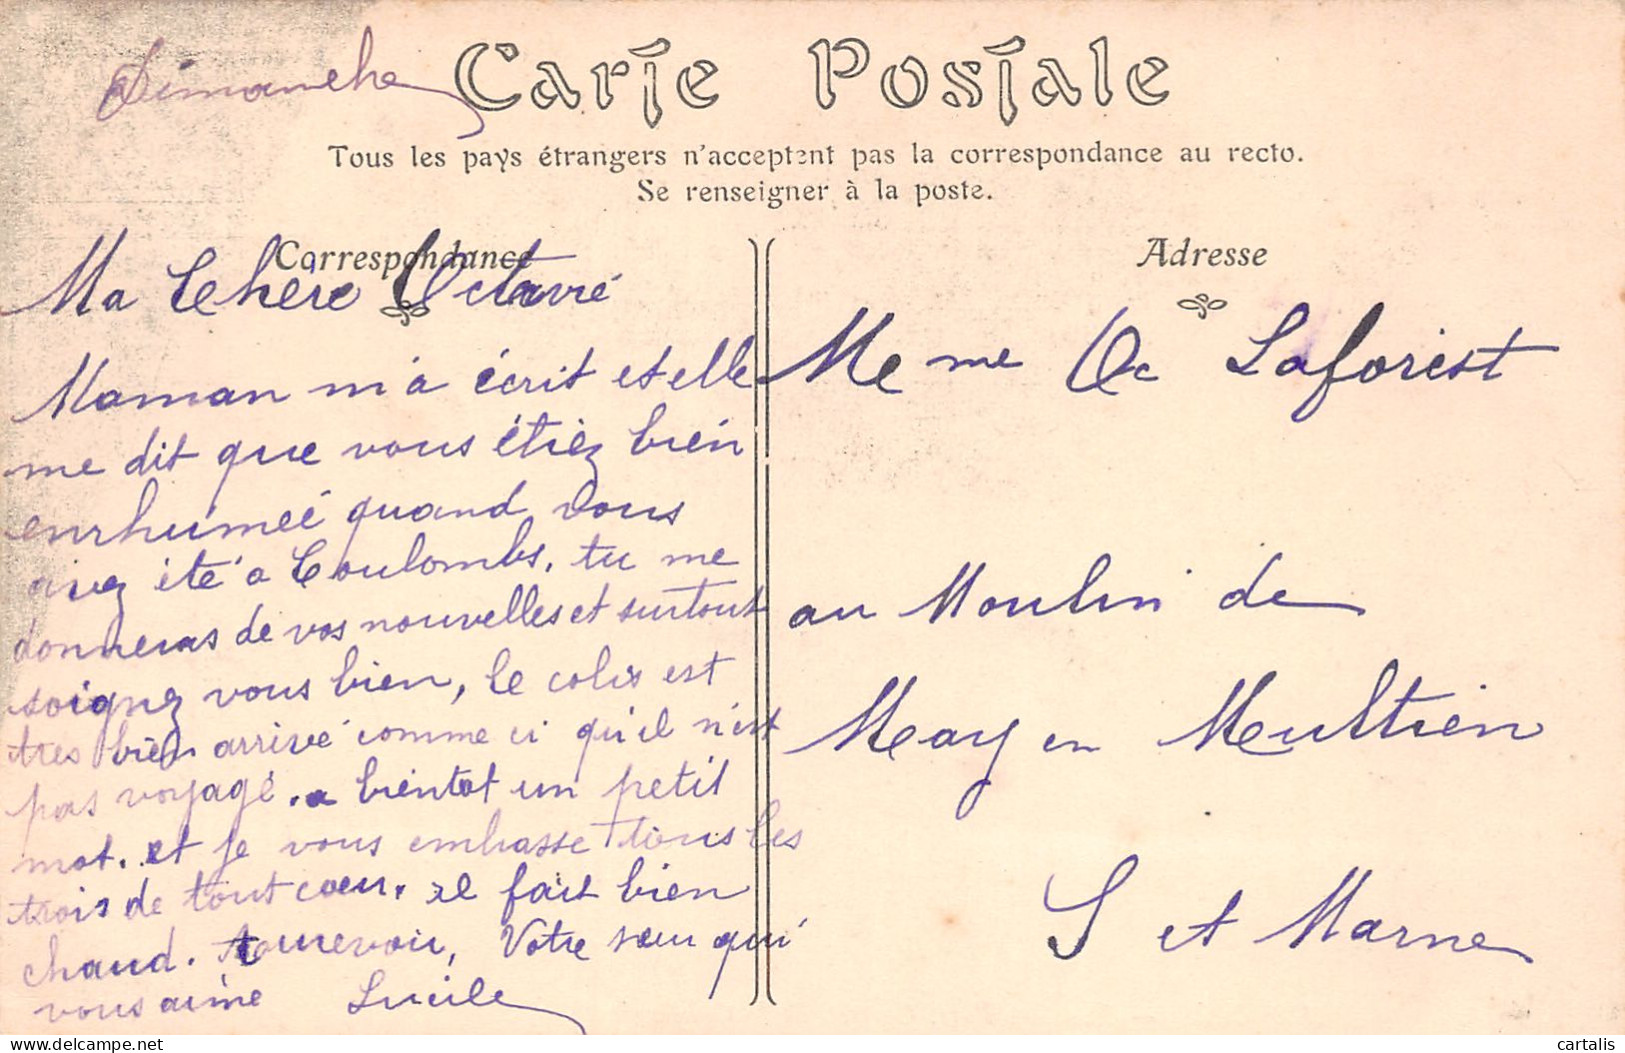 Dimanche
Carte Postale
Tous les pays étrangers n'acceptent pas la correspondance au recto.
Se renseigner à la poste.
Correspondance
Ma Chère Octavie
Maman m'a écrit et elle
me dit que vous étiez bien
enrhumée quand vous
avez été a Coulombs, tu me
donneras de vos nouvelles et surtout
soignez vous bien, le colis est
tres bien arrivé comme ci qu'il n'est
pas voyagé. a bientot un petit
mot. et je vous embrasse tous les
trois de tout coeur. il fait bien
chaud. aurevoir, Votre soeur qui
vous aime Lucile
Adresse
Meme Oc Laforest
au Moulin de
May en Multien
S et Marne
cartalis
delcampe.net